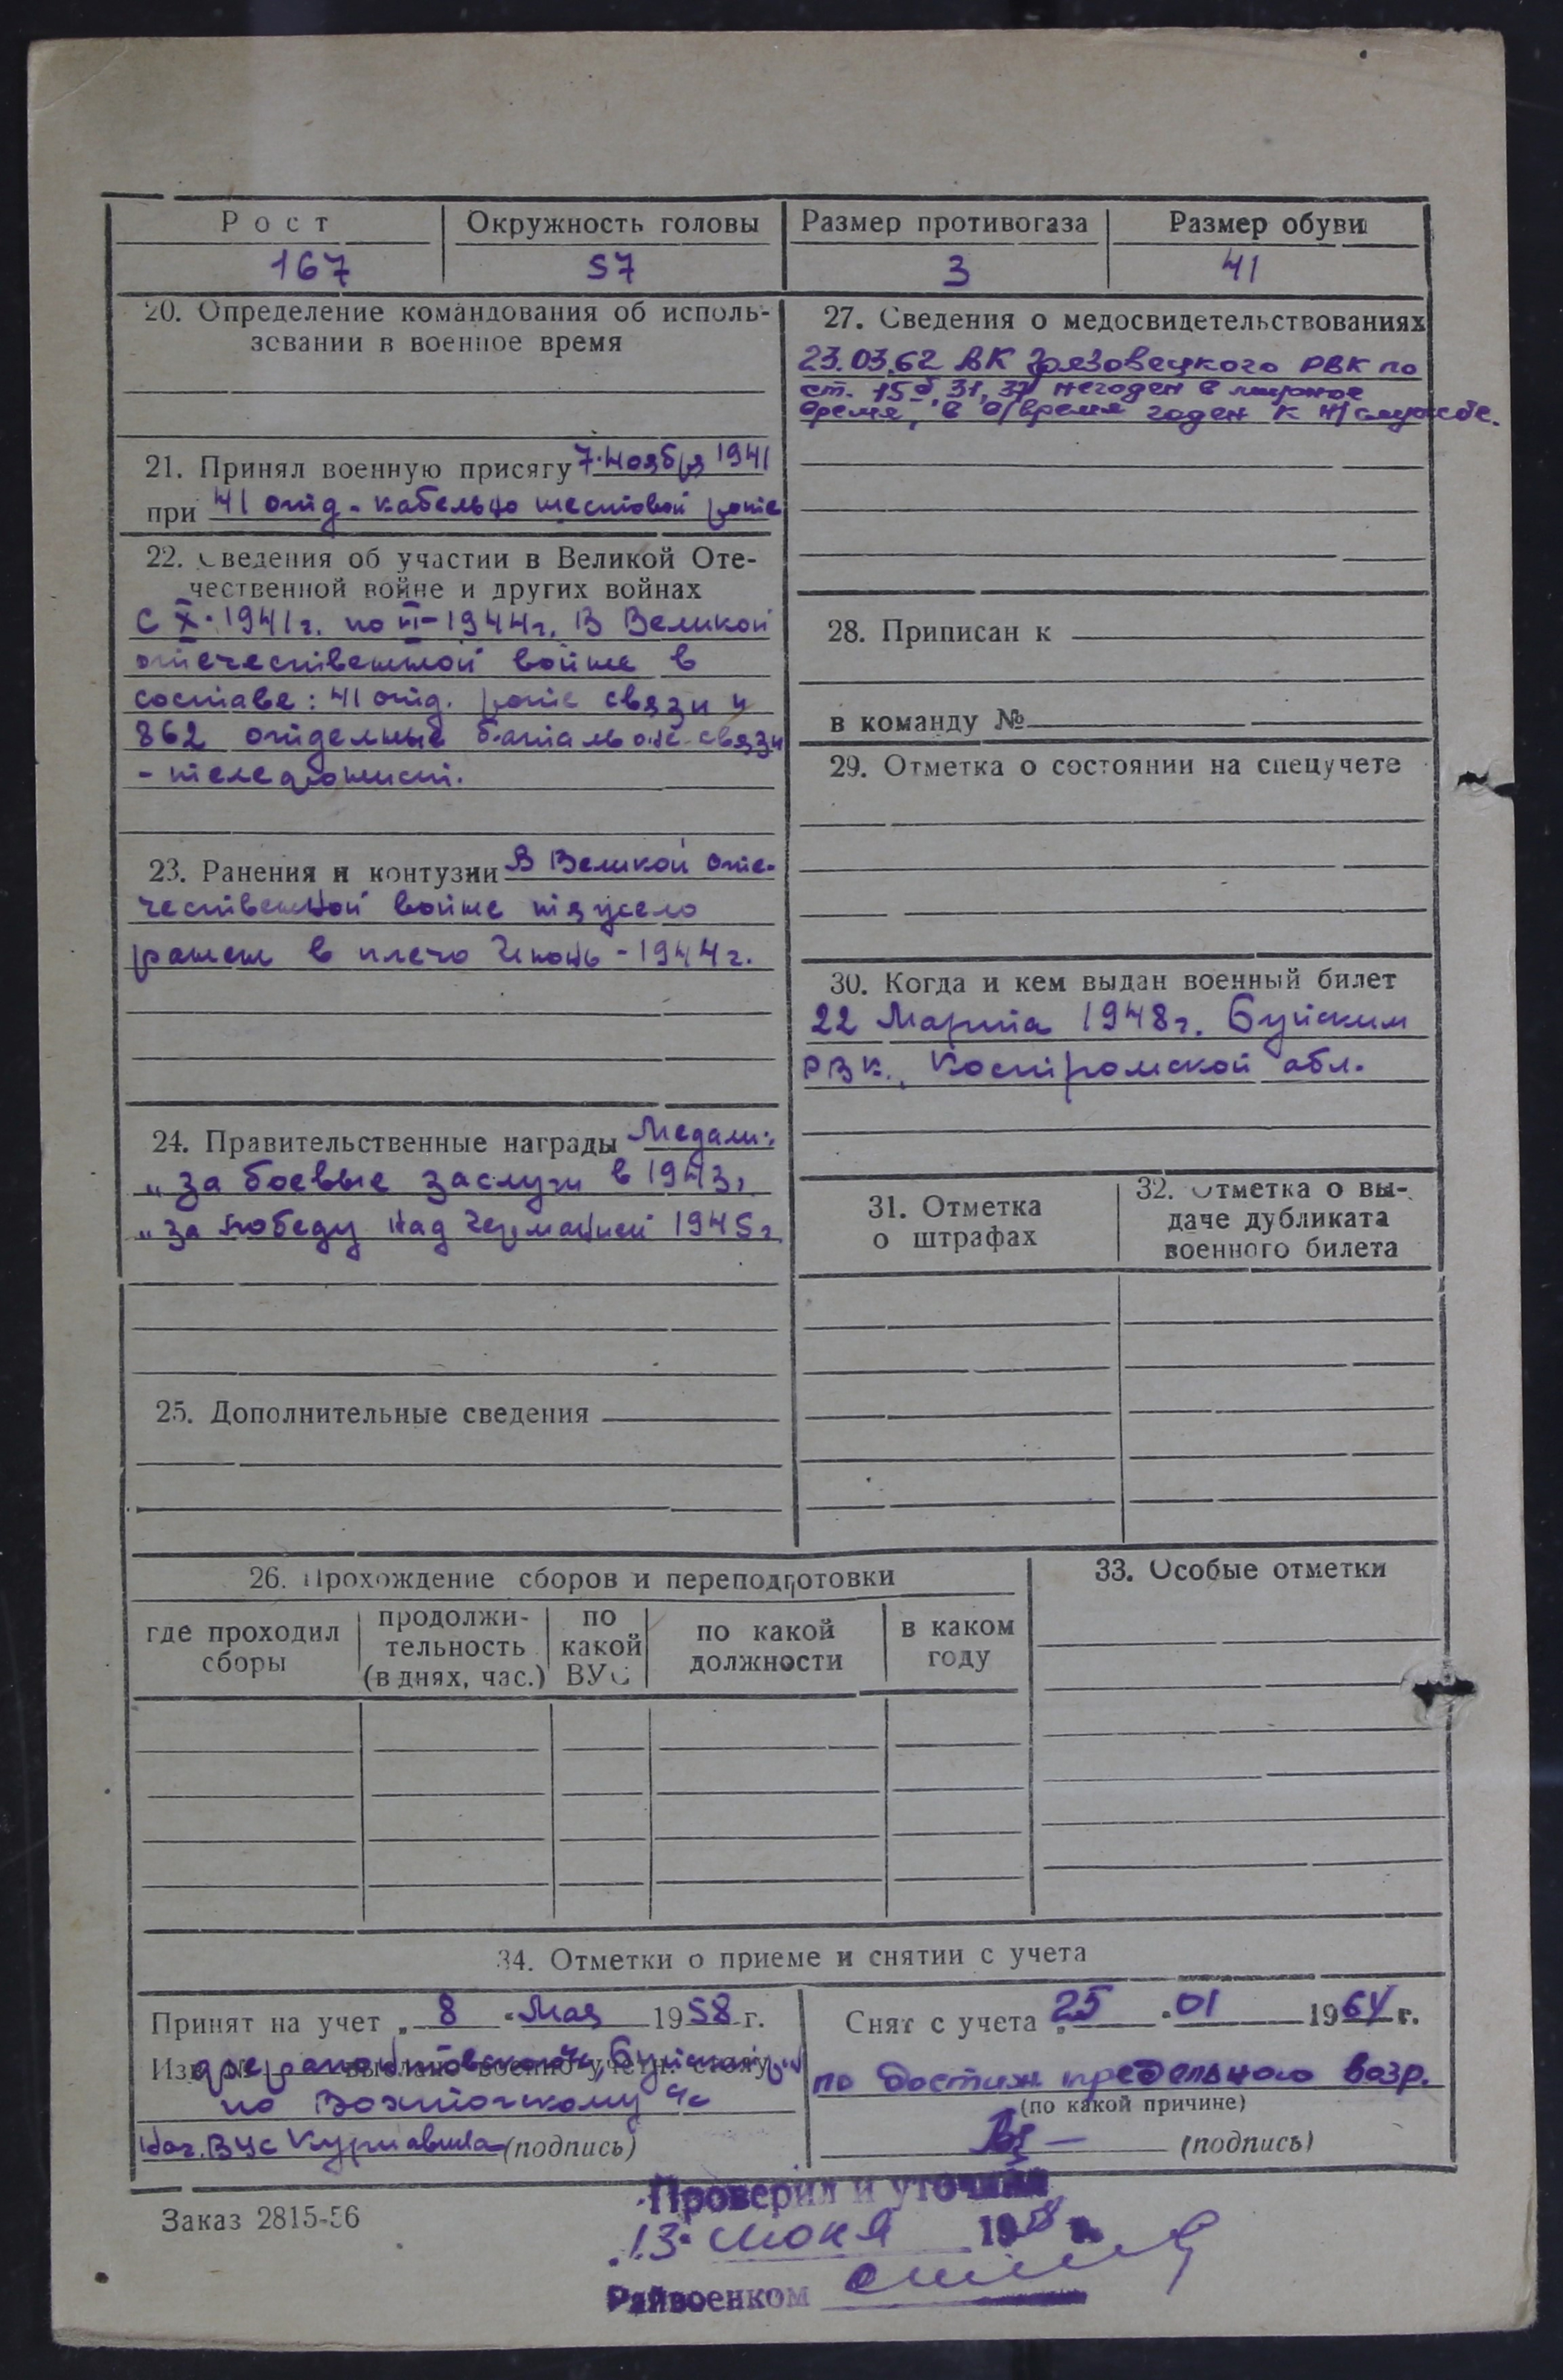 Рост Окружность головы Размер противогаза Размер обуви
167 57 3 41
20. Определение командования об исполь-
зовании в военное время
21. Принял военную присягу 7 ноября 1941
при 41 отд. кабельно шестовой роте
22. Сведения об участии в Великой Оте-
чественной войне и других войнах
С X-1941г. по VI-1944г. В Великой
отечественной войне в
составе: 41 отд. роте связи и
862 отдельные батальоне связи
- телефонист.
23. Ранения и контузии В Великой оте-
чественной войне тяжело
ранен в плечо Июнь - 1944г.
24. Правительственные награды Медали:
"За боевые заслуги в 1943г.
"За победу над Германией 1945г.
25. Дополнительные сведения
27. Сведения о медосвидетельствованиях
23.03.62 ВК Грязовецкого РВК по
ст. 15б, 31, 37 негоден в мирное
время, в в/время годен к н/службе.
28. Приписан к
в команду №
29. Отметка о состоянии на спецучете
30. Когда и кем выдан военный билет
22 Марта 1948г. Буйским
РВК., Костромской обл.
31. Отметка
о штрафах
32. Отметка о вы-
даче дубликата
военного билета
26. Прохождение сборов и переподготовки
где проходил
сборы
продолжи-
тельность
(в днях, час.)
по
какой
ВУС
по какой
должности
в каком
году
33. Особые отметки
34. Отметки о приеме и снятии с учета
Принят на учет "8" Мая 1958 г.
по Вохтогскому
Нач. ВУС (подпись)
Снят с учета 25 " 01 1964 г.
по достиж предельного возр.
(по какой причине)
(подпись)
Заказ 2815-56
Проверил и уточнил
"13" июня 1958 г.
Райвоенком